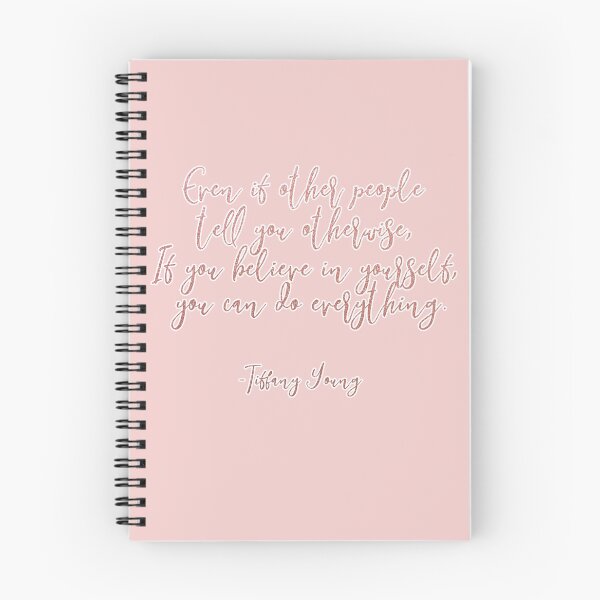 Even if other people
tell you otherwise,
If you believe in yourself,
you can do everything.
-Tiffany Young